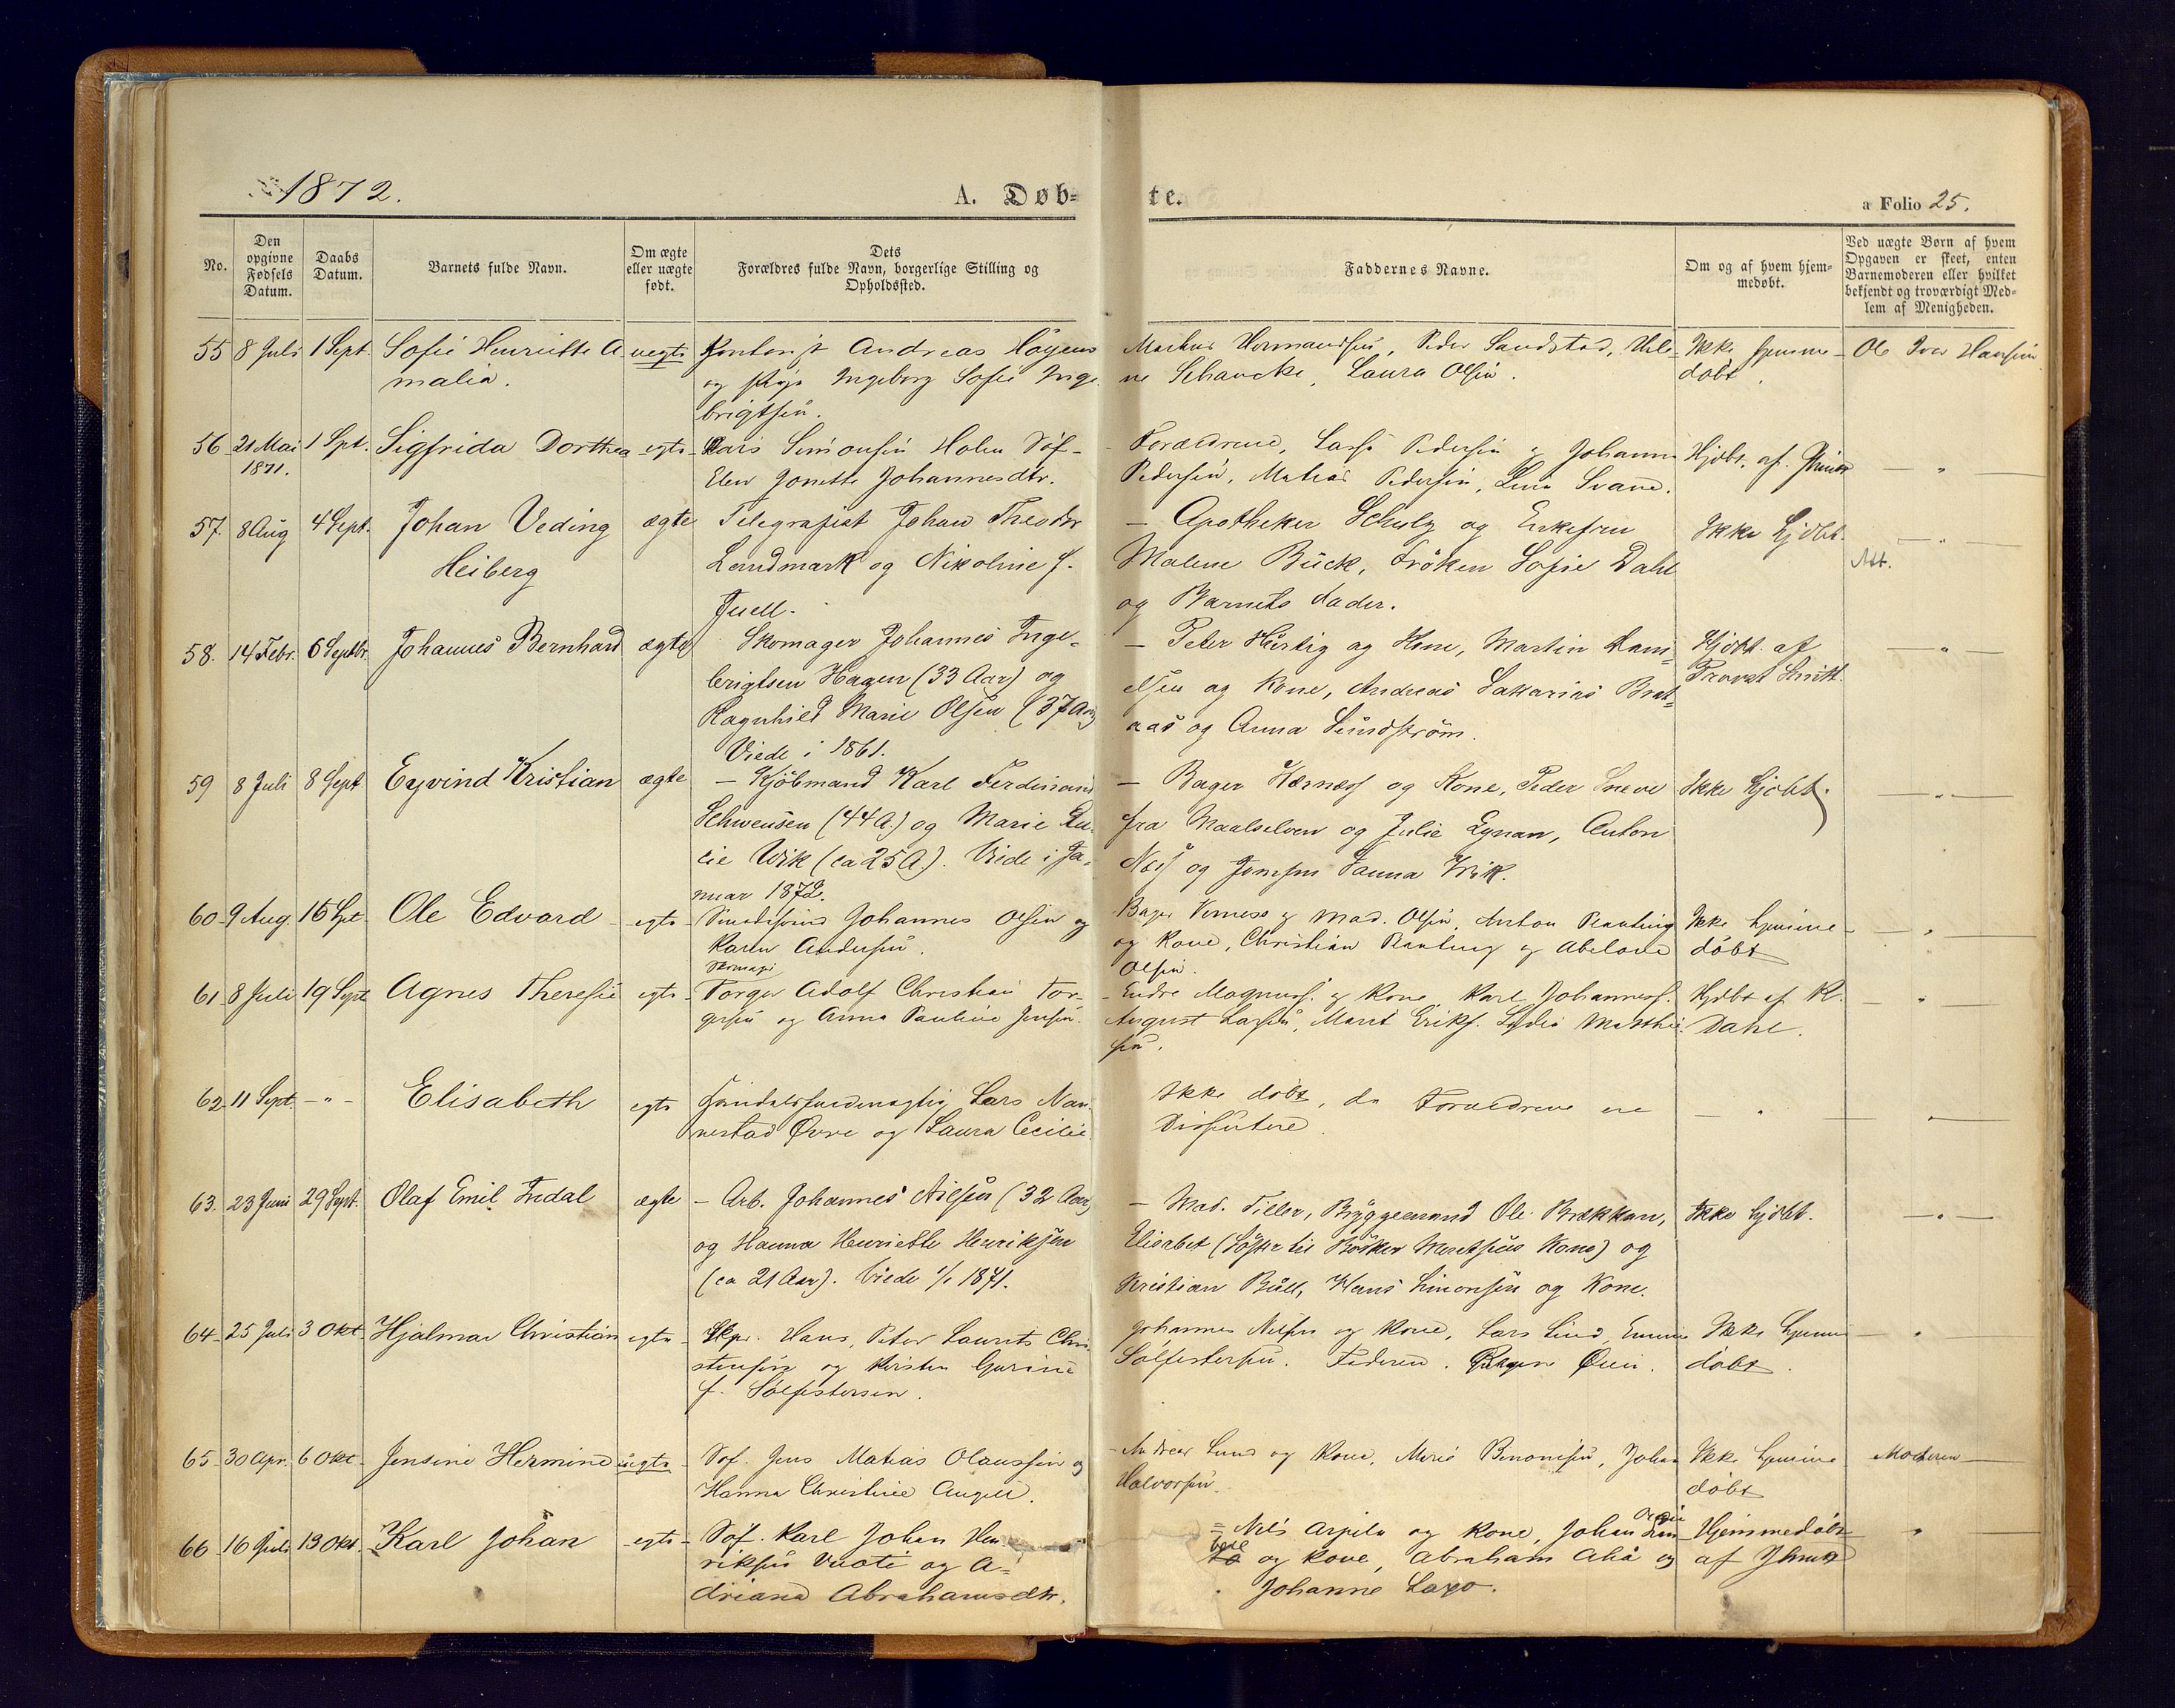 1872.
A. Døb=
te.
a Folio 25.
No.
Den opgivne Fødsels Datum.
Daabs Datum.
Barnets fulde Navn.
Om ægte eller uægte født.
Dets Forældres fulde Navn, borgerlige Stilling og Opholdssted.
Faddernes Navne.
Om og af hvem hjem=medøbt.
Ved uægte Børn af hvem Opgaven er skeet, enten Barnemoderen eller hvilket bekjendt og troværdigt Med=lem af Menigheden.
55 8 Juli 1 Sept. Sofie Henriette A- uegte Kontorist Andreas Höyens
malia. og Pige Ingeborg Sofie Inge
brigtsen.
Markus Hermansen, Peder Sandstad, Hele-
ne Schancke, Laura Olsen.
Ikke hjemme-
döbt.
Ole Iver Hansen
56 21 Mai 1 Spt. Sigfrida Dorthea egte Lars Simonsen Holm
1871. Elen Jonette Johannesdtr.
Forældrene, Lars Pedersen og Johanna
Pedersen, Matias Pedersen, Lina Svane.
Hjdbt. af
57. 8 Aug 4 Sept. Johan Veding ægte Telegrafist Johan Theodor
Heiberg Landmark og Nikoline f.
Juell.
- Apotheker Schulz og Enkefru
Malene Bück, Fröken Sofie Dahl
og Barnets Fader.
Ikke hjdbt.
Att.
58. 14 Febr. 6 Septbr. Johannes Bernhard ægte Skomager Johannes Inge-
brigtsen Hagen (33 Aar) og
Ragnhild Marie Olsen (37 Aar)
Viede i 1861.
- Peter Hertig og Kone, Martin Dani-
elsen og Kone, Andreas Sakarias Brat=
aas og Anna Sundström.
Hjdbt. af
Provst
59 8 Juli 8 Sept. Eyvind Kristian ægte - Kjöbmand Karl Ferdinand
Schwensen (44 A.) og Marie Lu-
cie Wik (ca 25 A.). Viede i Ja-
nuar 1872.
- Bager Kærness og Kone, Peder
fra Maalselven og Julie Lynan, Anton
og Jomfru Wik.
Ikke hjdbt.
60 9 Aug. 15 Spt. Ole Edvard egte Johannes Olsen og
Karen Andersen.
Bager og Mad. Olsen, Anton
og Kone, Christian og Abelone
Olsen.
Ikke hjemme-
döbt
61 8 Juli 19 Sept Agnes Theresie egte
Skomager
Torger Adolf Christian Tor-
gersen og Anna Pauline Jensen.
- Endre Magnuss. og Kone, Karl Johanness.
August Larsen, Marit Eriks. Lydia Matthie
sen.
Hjdbt af Kl.
Dahl.
62 11 Sept. - " - Elisabeth egte Handelsfuldmægtig Lars Nan-
nestad Øvre og Laura Cecilie
Ikke döbt, da Forældrene ere
Dissentere.
63. 23 Juni 29 Sept. Olaf Emil Indal ægte - Arb. Johannes Nilsen (32 Aar)
og Hanna Henriette Henriksen
(ca 21 Aar). Viede 1/1 1871.
- Mad. Tiller, Bryggemand Ole Brækkan,
Elisabet (Söster til Bödker Kone) og
Kristian Büll, Hans Simonsen og Kone.
Ikke hjdbt.
64 25 Juli 3 Okt. Hjalmar Christian egte Skpr. Hans Peter Laurits Chri
stensen og Kirsten Gurine
f. Sölfestersen.
Johannes Nilsen og Kone, Lars Lind, Emma
Sölfestersen. Faderen. Øien.
Ikke hjemme
döbt.
65 30 Apr. 6 Okt. Jensine Hermine uegte Söf. Jens Matias Olaussen og
Hanna Christine Angell.
- Andreas Lund og Kone, Marie Benonisen, Johan
Halvorsen.
Ikke hjemme
döbt
Moderen
66 16 Juli 13 Okt. Karl Johan egte Söf. Karl Johan Hen
riksen Vuoti og A-
driana Abrahamsdtr.
= Nils Arpela og Kone, Johan
og Kone, Abraham Aha og
Johanne Lago.
Hjemmedöbt
af